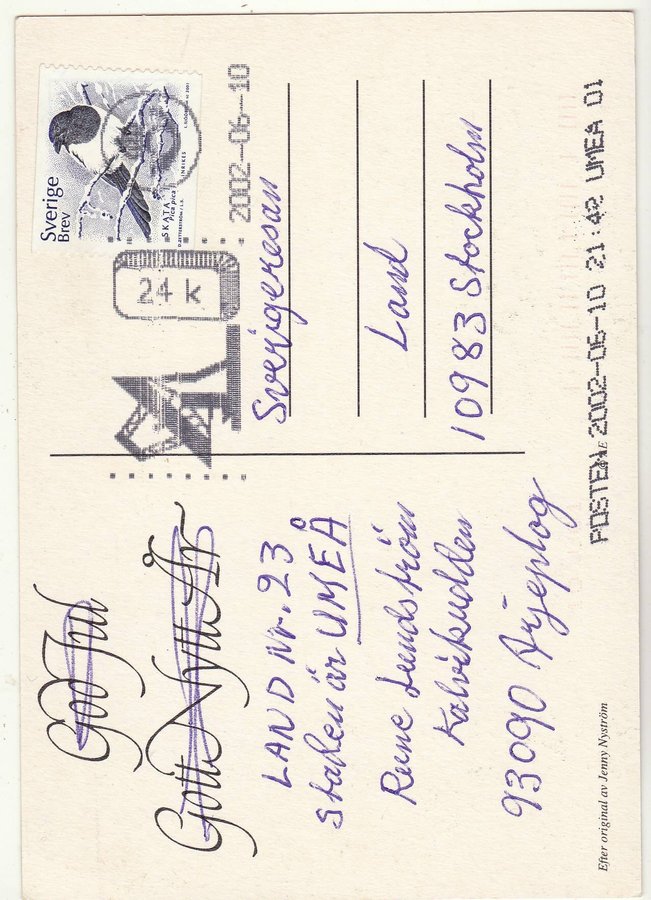 God Jul
Gott Nytt År
LAND Nr. 23
Staden är UMEÅ
Rune Lundström
Kalvikudden
93090 Arjeplog
Efter original av Jenny Nyström
Sverige
Brev
SKATA
Pica pica
2002-06-10
24 k
Sverigeresan
Land
10983 Stockholm
POSTEN 2002-06-10 21:42 UMEA 01